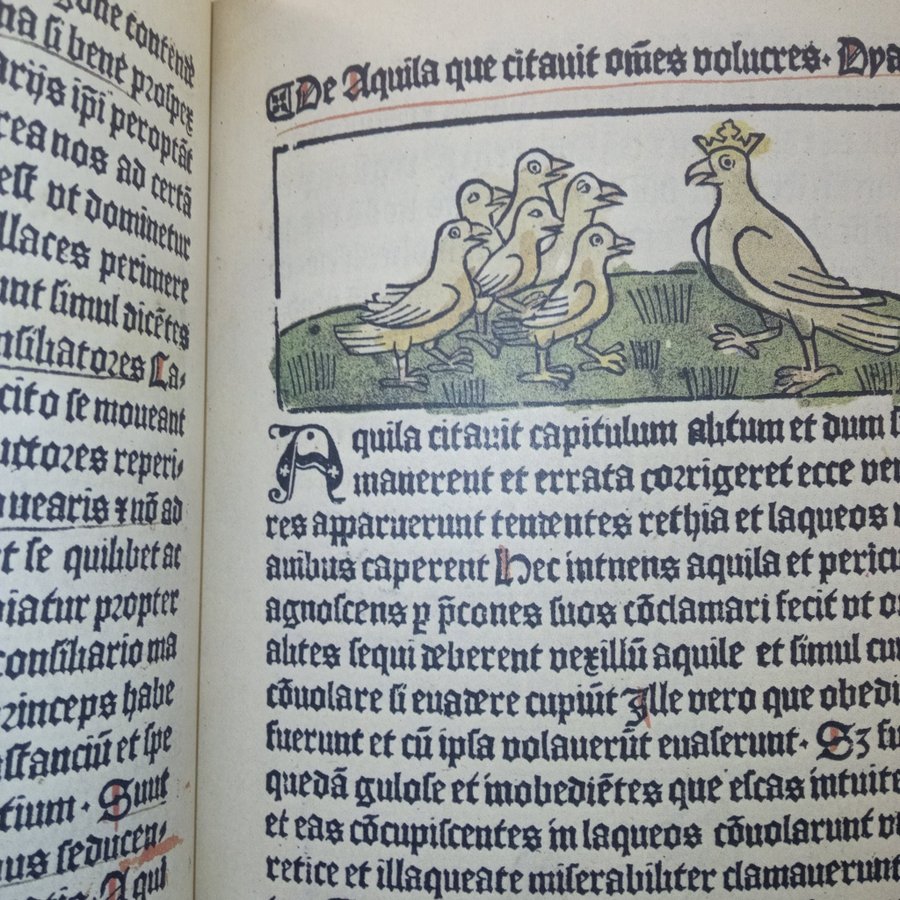 gone contende
na si bene prospex
arijs ip̄i peroptāt
rea nos ad certā
est vt dominetur
llaces perimere
unt simul dicētes
nsiliatores La⸗
cito se moueant
uctores reperi⸗
quearis ⁊ nō ad
t se quilibet ac
iatur propter
consiliario ma
rinceps habe
estanciū et spe
tium · Sunt
us seducen⸗
Aqui
De Aquila que citavit om̄es volucres· Dya
Aquila citavit capitulum alitum et dum s
manerent et errata corrigeret ecce ve
res apparuerunt tendentes rethia et laqueos
auibus caperent Hec intuens aquila et pericu
agnoscens p p̄cones suos cōclamari fecit vt o
alites sequi deberent vexillū aquile et simul cu
cōuolare si euadere cupiūt Ille vero que obedi
fuerunt et cū ipsa volauerūt euaserunt· Sʒ fu
quedā gulose et inobediētes que escas intuite
et eas cōcupiscentes in laqueos cōuolarunt
retice et illaqueate miserabiliter clamauerunt